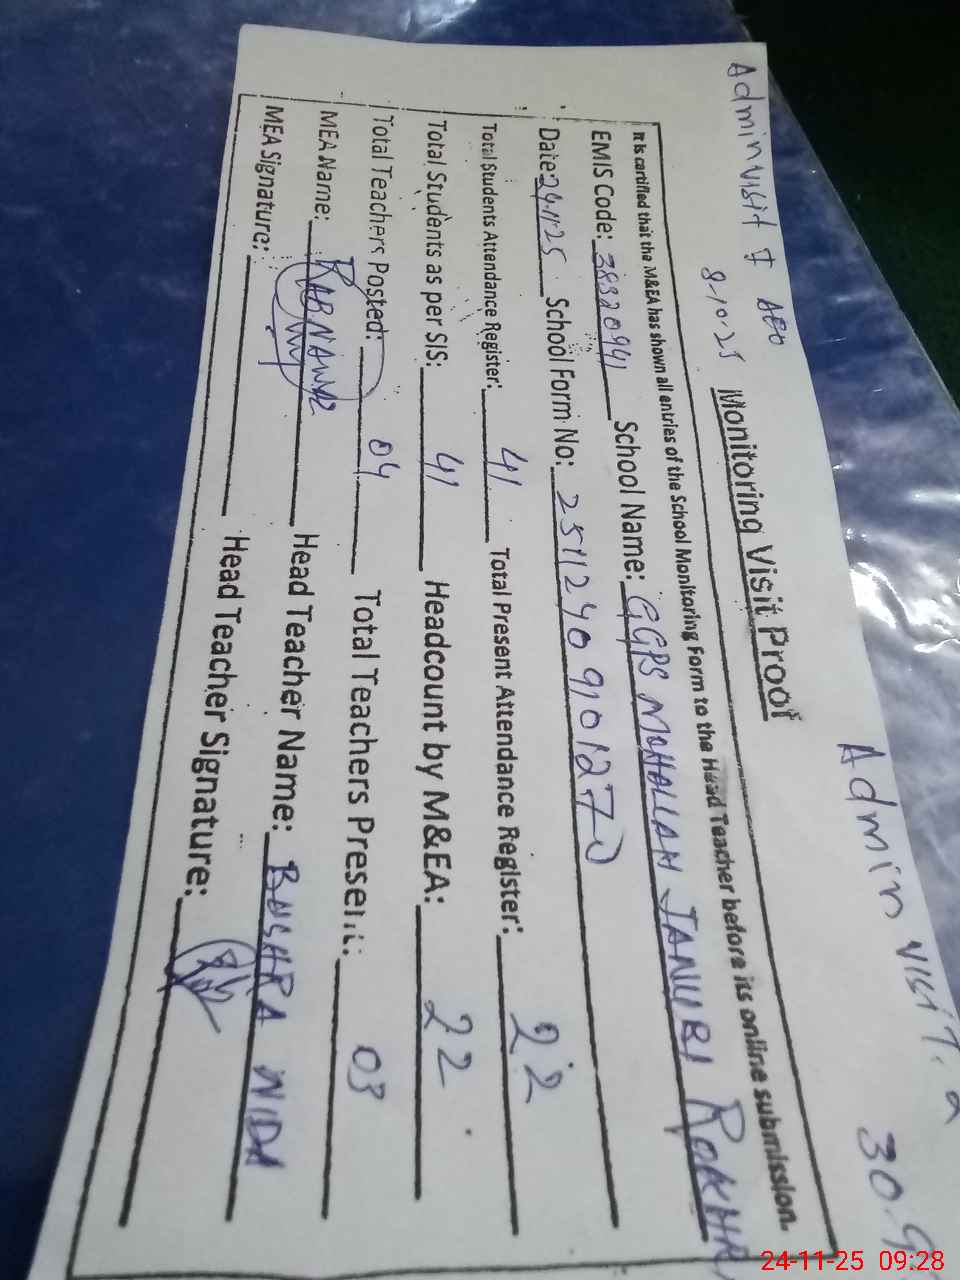 Admin visit I AEO
8-10-25
Admin visit.
30.9
Monitoring Visit Proof
It is certified that the M&EA has shown all entries of the School Monitoring Form to the Head Teacher before its online submission.
EMIS Code: 38320941 School Name: GGPS MOHALLAH JANUBI ROKHRI
Date: 24.11.25 School Form No: 2511240910127
Total Students Attendance Register: 41 Total Present Attendance Register: 22
Total Students as per SIS: 41 Headcount by M&EA: 22
Total Teachers Posted: 04 Total Teachers Present: 03
MEA Name: RABNAWAZ Head Teacher Name: BUSHRA NIDA
MEA Signature: Head Teacher Signature:
24-11-25 09:28